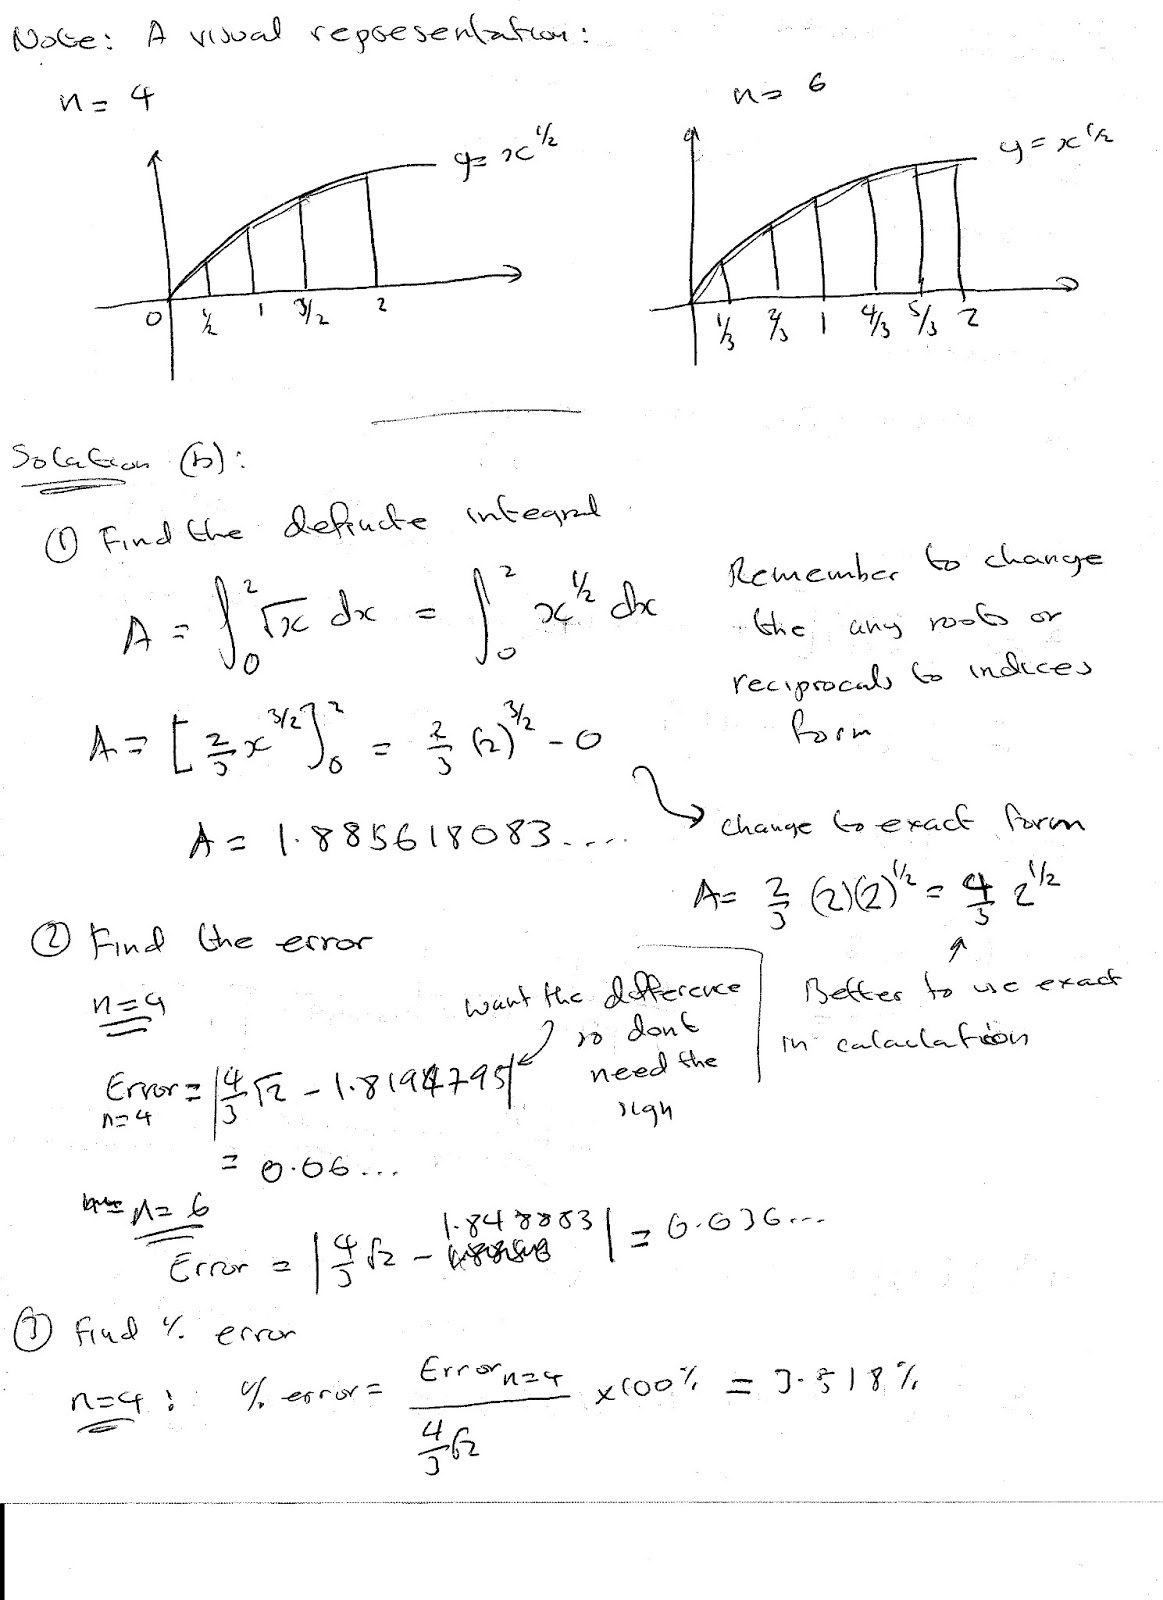 Note: A visual representation:
n = 4
n = 6
y = x^1/2
y = x^1/2
0 1/2 1 3/2 2
1/3 2/3 1 4/3 5/3 2
Solution (b):
① Find the definite integral
A = ∫₀² √x dx = ∫₀² x^1/2 dx
Remember to change
the any roots or
reciprocals to indices
form
A = [2/3 x^3/2]₀² = 2/3 (2)^3/2 - 0
A = 1.885618083....
change to exact form
A = 2/3 (2)(2)^1/2 = 4/3 2^1/2
Better to use exact
in calculation
② Find the error
n=4
want the difference
so dont
need the
sign
Error n=4 = |4/3 √2 - 1.8194795|
= 0.06...
n = 6
Error = |4/3 √2 - 1.848883| = 0.036...
③ Find % error
n=4: % error = Error n=4 / 4/3 √2 × 100% = 3.518%